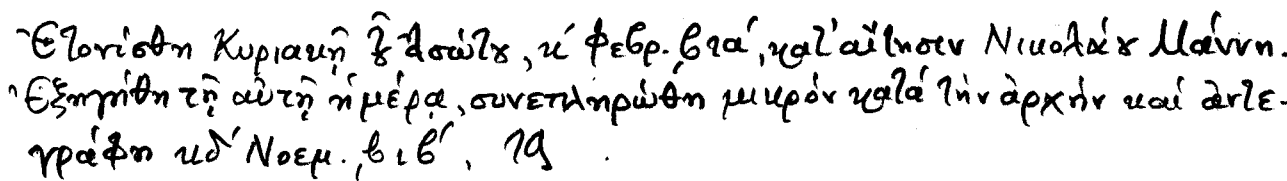 Ἐτονίσθη Κυριακῇ τοῦ Ἀσώτου, κ´ Φεβρ. ͵βια´, κατ' αἴτησιν Νικολάου Μάννη.
Ἐξηγήθη τῇ αὐτῇ ἡμέρᾳ, συνεπληρώθη μικρόν κατά τήν ἀρχήν καί ἀντε-
γράφη κδ´ Νοεμ. ͵βιβ´,